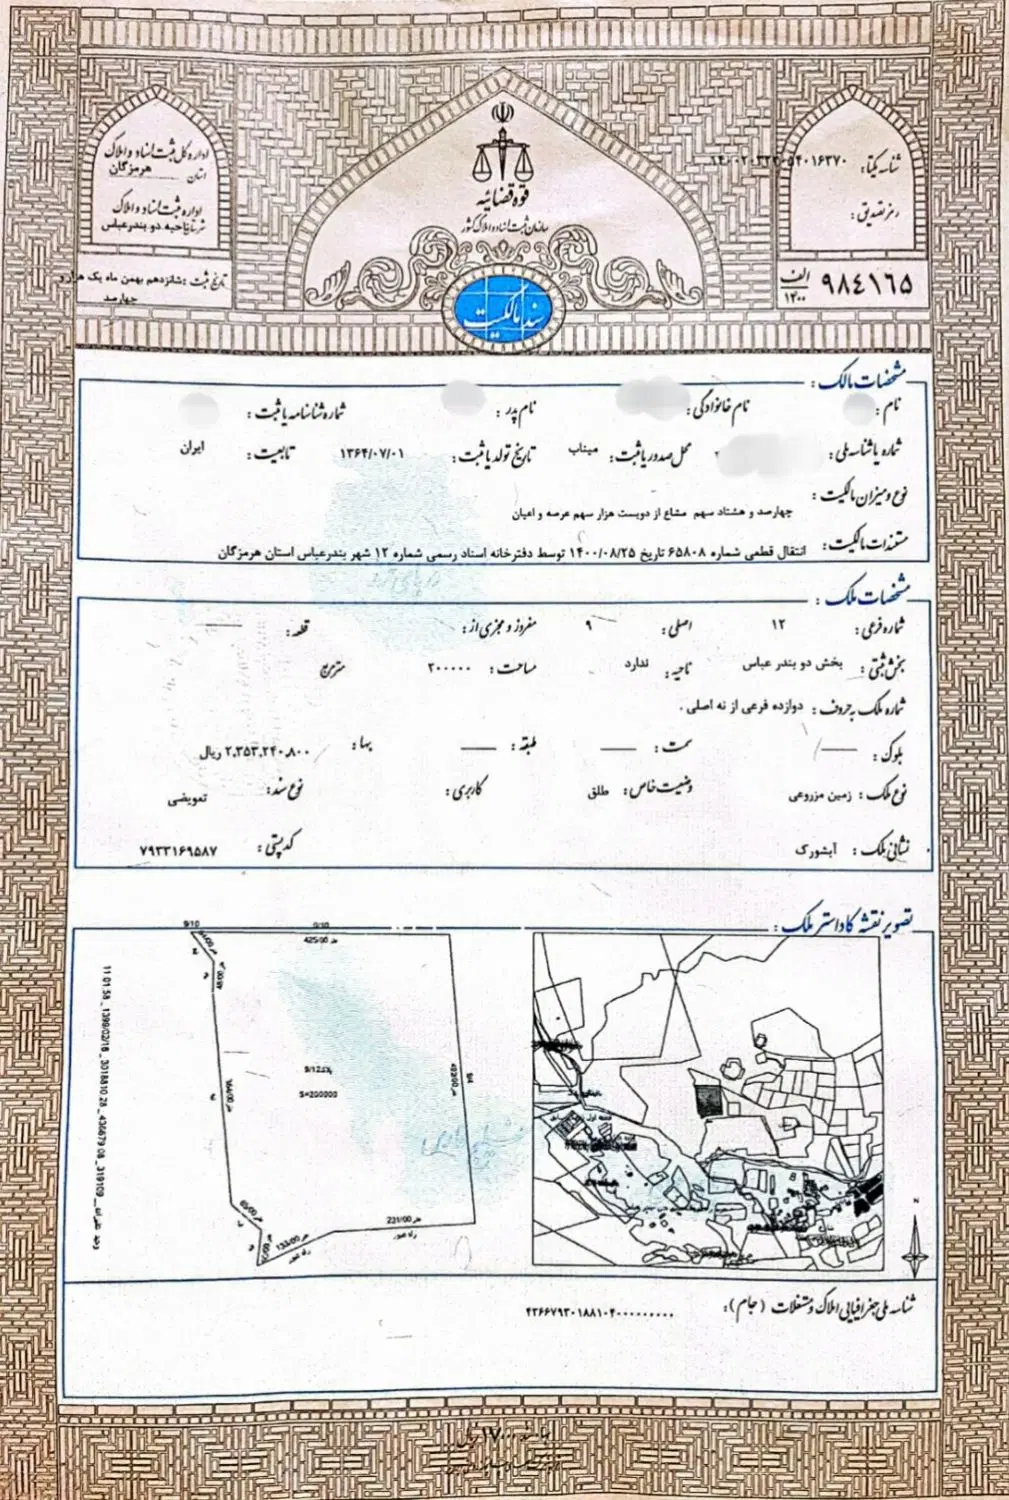 قوه قضائیه
سازمان ثبت اسناد و املاک کشور
سند مالکیت
اداره کل ثبت اسناد و املاک
استان هرمزگان
اداره ثبت اسناد و املاک
ناحیه دو بندرعباس
تاریخ ثبت : شانزدهم بهمن ماه یک هزار و
چهارصد
شناسه یکتا :
رمز تصدیق :
۹۸۴۱۶۵ الف ۱۴۰۰
مشخصات مالک :
نام : نام خانوادگی : نام پدر : شماره شناسنامه یا ثبت :
شماره یا شناسه ملی : محل صدور یا ثبت : میناب تاریخ تولد یا ثبت : ۱۳۶۴/۰۷/۰۱ تابعیت : ایران
نوع و میزان مالکیت :
چهارصد و هشتاد سهم مشاع از دویست هزار سهم عرصه و اعیان
مستندات مالکیت : انتقال قطعی شماره ۶۵۸۰۸ تاریخ ۱۴۰۰/۰۸/۲۵ توسط دفترخانه اسناد رسمی شماره ۱۲ شهر بندرعباس استان هرمزگان
مشخصات ملک :
شماره فرعی : ۱۲ اصلی : ۹ مفروز و مجزی از : قطعه :
بخش ثبتی : بخش دو بندر عباس ناحیه : ندارد مساحت : ۲۰۰۰۰۰ مترمربع
شماره ملک به حروف : دوازده فرعی از نه اصلی .
بلوک : سمت : طبقه : بها : ۲,۳۵۳,۲۴۰,۸۰۰ ریال
نوع ملک : زمین مزروعی وضعیت خاص : طلق کاربری : نوع سند : تعویضی
نشانی ملک : آبشورک کدپستی : ۷۹۳۳۱۶۹۵۸۷
تصویر نقشه کاداستر ملک :
9/10
9/10
425/00 متر
48/00 متر
164/00 متر
9/4
492/00 متر
پلاک 9/12
S=200000
65/00 متر
133/00 متر
راه عبور
231/00 متر
راه عبور
N
شناسه ملی جغرافیایی املاک و مستغلات (جام) : ۴۳۶۶۷۹۳۰۱۸۸۱۰۴۰۰۰۰۰۰۰۰۰